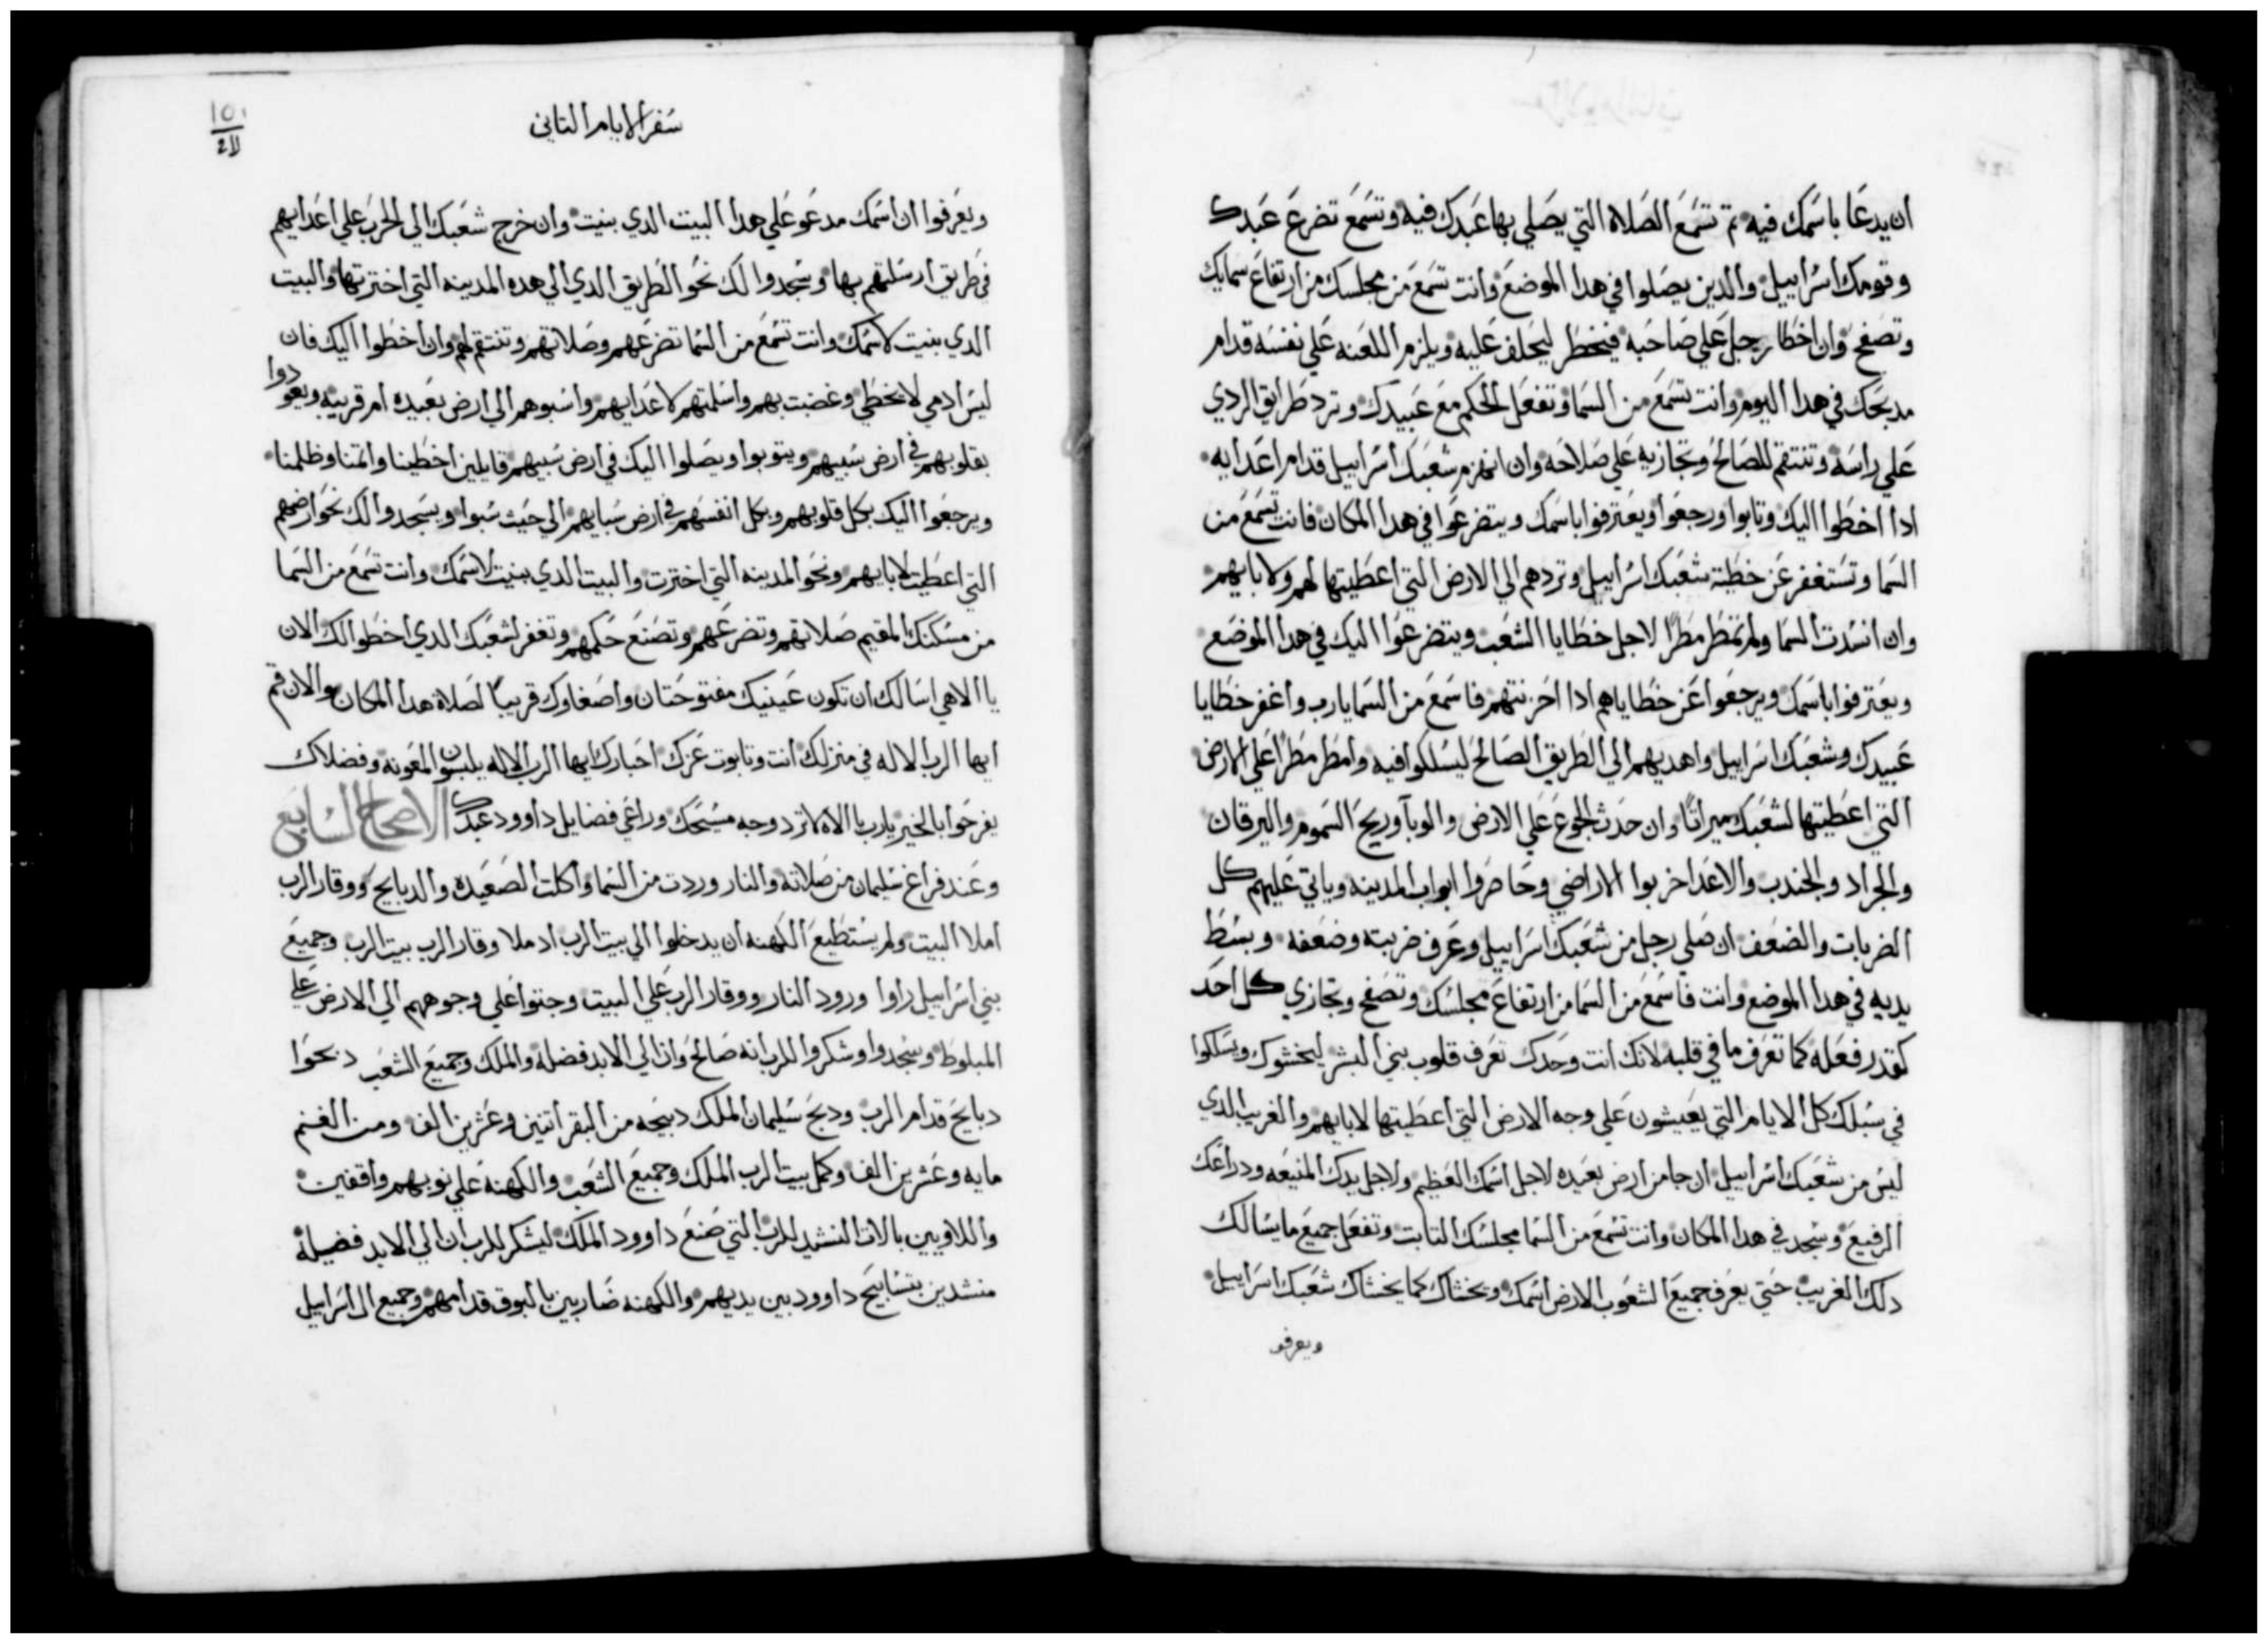 ان يدعا باسمك فيه تم تسمع الصلاه التي يصلي بها عبدك فيه وتسمع تضرع عبدك
وقومك اسراييل والدين يصلوا في هدا الموضع وانت تسمع من مجلسك من ارتفاع سمايك
وتصفح وان اخطا رجل علي صاحبه فيخطر ليحلف عليه ويلزم اللعنه علي نفسه قدام
مدبحك في هدا اليوم وانت تسمع من السما وتفعل الحكم مع عبيدك وترد طرايق الردي
علي راسه وتنتقم للصالح وتجازيه علي صلاحه وان انهزم شعبك اسراييل قدام اعدايه
ادا اخطوا اليك وتابوا ورجعوا ويعترفوا باسمك ويتضرعوا في هدا المكان فانت تسمع من
السما وتستغفر عن خطية شعبك اسراييل وتردهم الي الارض التي اعطيتها لهم ولابايهم
وان انسدت السما ولم تمطر مطرًا لاجل خطايا الشعب ويتضرعوا اليك في هدا الموضع
ويعترفوا باسمك ويرجعوا عن خطاياهم ادا احزنتهم فاسمع من السما يارب واغفر خطايا
عبيدك وشعبك اسراييل واهديهم الي الطريق الصالح ليسلكوا فيه وامطر مطرًا علي الارض
التي اعطيتها لشعبك ميراتًا وان حدث الجوع علي الارض والوبآ وريح السموم واليرقان
والجراد والجندب والاعدا خربوا الاراضي وحاصروا ابواب المدينه وياتي عليهم كل
الضربات والضعف ان صلي رجل من شعبك اسراييل وعرف ضربته وضعفه وبسط
يديه في هدا الموضع وانت فاسمع من السما من ارتفاع مجلسك وتصفح وتجازي كل احد
كقدر فعله كما تعرف ما في قلبه لانك انت وحدك تعرف قلوب بني البشر ليخشوك ويسلكوا
في سبلك كل الايام التي يعيشون علي وجه الارض التي اعطيتها لابايهم والغريب الدي
ليس من شعبك اسراييل ان جا من ارض بعيده لاجل اسمك العظيم ولاجل يدك المنيعه ودراعك
الرفيع وسجد في هدا المكان وانت تسمع من السما مجلسك التابت وتفعل جميع ما يسالك
دلك الغريب حتي يعرف جميع الشعوب الارض اسمك ويخشاك كما يخشاك شعبك اسراييل
ويعرفو
سفر الايام التاني
ويعرفوا ان اسمك مدعو علي هدا البيت الدي بنيت وان خرج شعبك الي الحرب علي اعدايهم
في طريق ارسلتهم بها وسجدوا لك نحو الطريق الدي الي هده المدينه التي اخترتها والبيت
الدي بنيت لاسمك وانت تسمع من السما تضرعهم وصلاتهم وتنتقم لهم وان اخطوا اليك فان
ليس ادمي لا يخطي وغضبت بهم واسلمتهم لاعدايهم واسبوهم الي ارض بعيده ام قريبه ويعودوا
بقلوبهم في ارض سبيهم ويتوبوا ويصلوا اليك في ارض سبيهم قايلين اخطينا واتمنا وظلمنا
ويرجعوا اليك بكل قلوبهم وبكل انفسهم في ارض سبايهم الي حيث سبوا ويسجدوا لك نحو ارضهم
التي اعطيت لابايهم ونحو المدينه التي اخترت والبيت الدي بنيت لاسمك وانت تسمع من السما
من مسكنك المقيم صلاتهم وتضرعهم وتصنع حكمهم وتغفر لشعبك الدي اخطوا لك الان
يا الاهي اسالك ان تكون عينيك مفتوحتان واصغاوك قريبًا لصلاة هدا المكان والان قم
ايها الرب الاله في منزلك انت وتابوت عزك احبارك ايها الرب الاله يلبسون المعونه وفضلاك
يفرحوا بالخير يارب يا الاه لا ترد وجه مسيحك وراعي فضايل داوود عبدك الاصحاح السابع
وعند فراغ سليمان من صلاته والنار وردت من السما واكلت الصعيده والدبايح ووقار الرب
املا البيت ولم يستطيع الكهنه ان يدخلوا الي بيت الرب اد ملا وقار الرب بيت الرب وجميع
بني اسراييل راوا ورود النار ووقار الرب علي البيت وجتوا علي وجوههم الي الارض علي
المبلوط وسجدوا وشكروا للرب انه صالح وان الي الابد فضله والملك وجميع الشعب دبحوا
دبايح قدام الرب ودبح سليمان الملك دبيحه من البقر اتنين وعشرين الف ومن الغنم
مايه وعشرين الف وكمل بيت الرب الملك وجميع الشعب والكهنه علي نوبهم واقفين
واللاويين بالات النشيد للرب التي صنع داوود الملك ليشكر للرب ان الي الابد فضيلة
منشدين بتسابيح داوود بين يديهم والكهنه ضاربين بالبوق قدامهم وجميع ال اسراييل